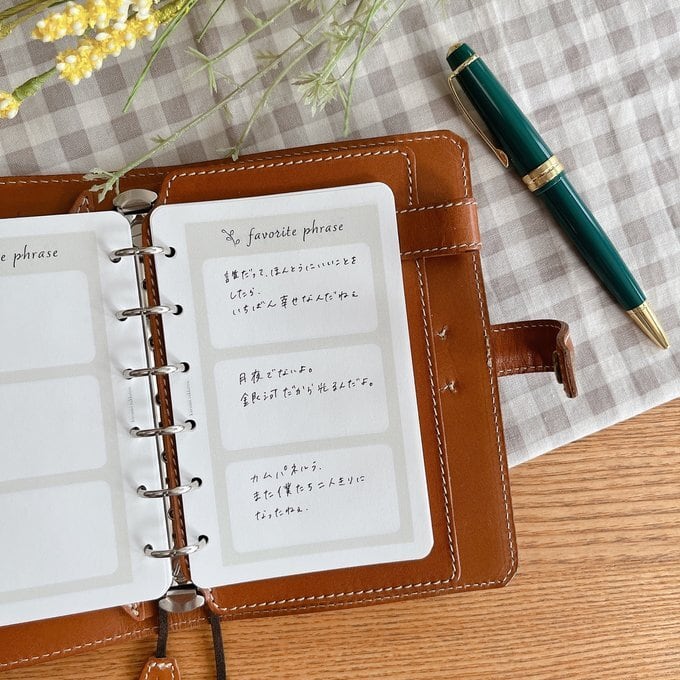 e phrase
favorite phrase
誰だって、ほんとうにいいことを
したら、
いちばん幸せなんだねぇ
月夜でないよ。
銀河だから光るんだよ。
カムパネルラ、
また僕たち二人きりに
なったねぇ。